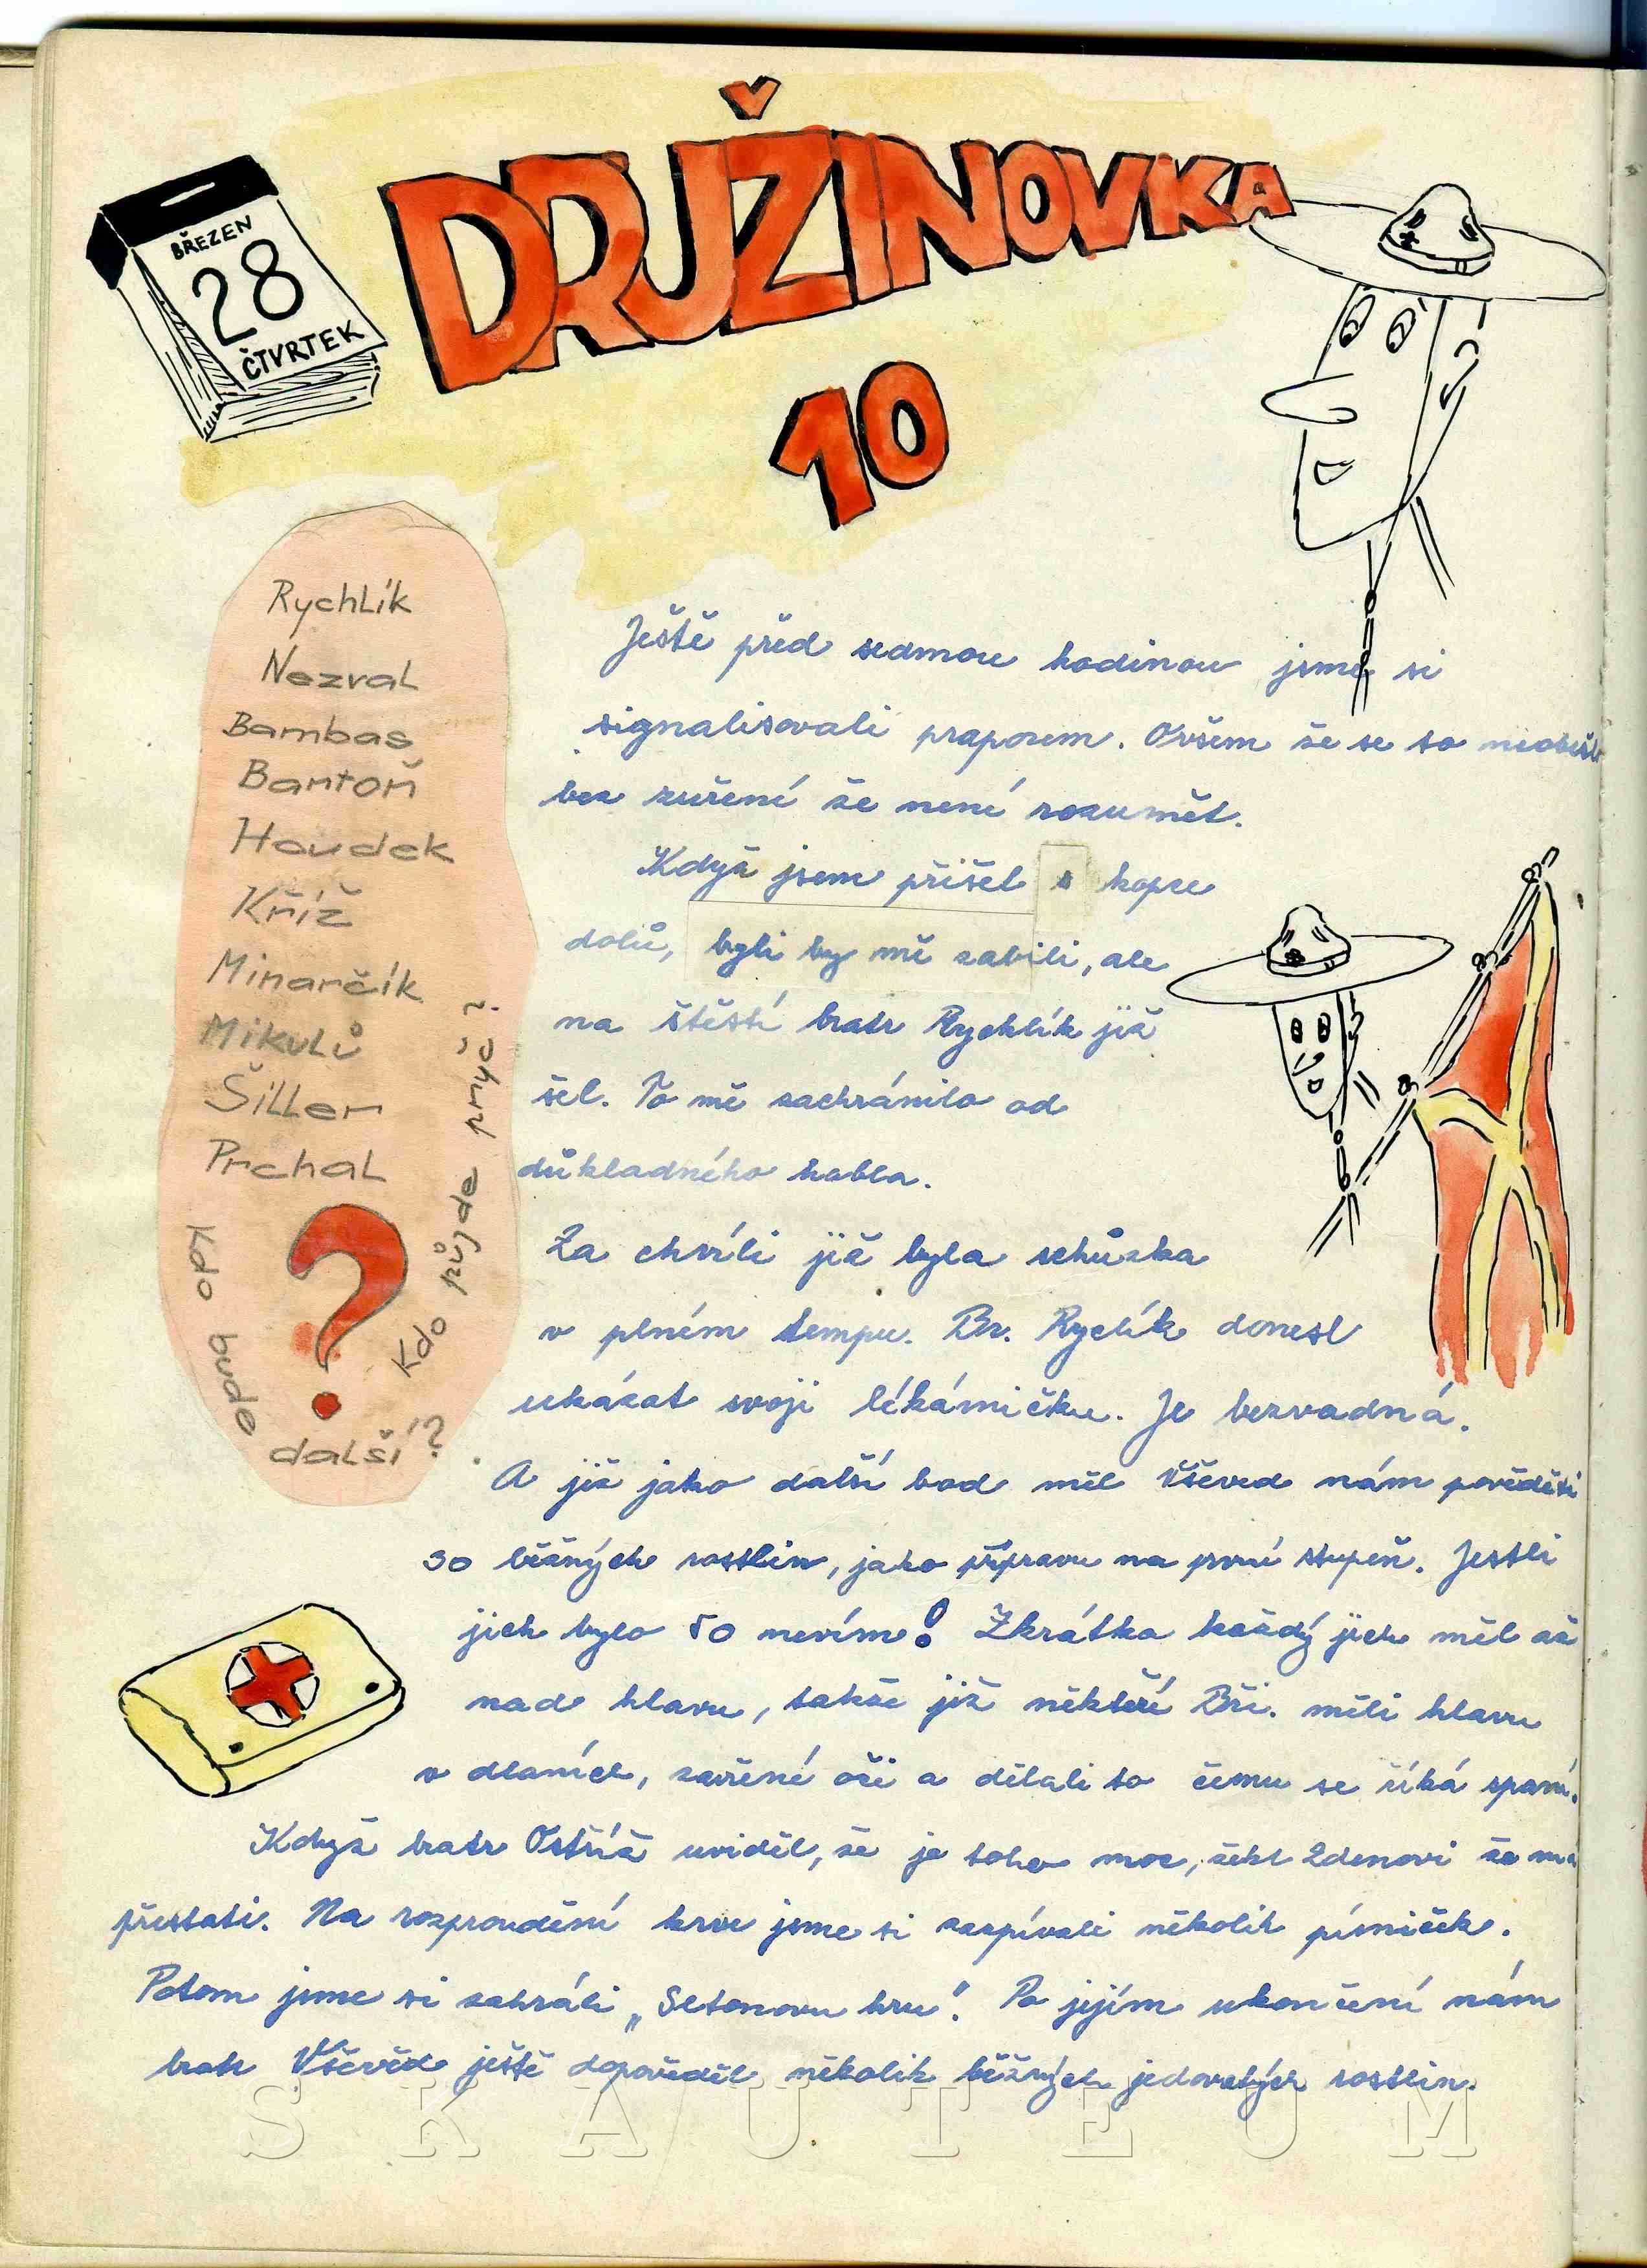 DRUŽINOVKA
10
BŘEZEN
28
ČTVRTEK
Rychlík
Nezval
Bambas
Bartoň
Houdek
Kříž
Minarčík
Mikulů
Šiller
Prchal
?
Kdo bude další?
Kdo půjde pryč?
Ještě před sedmou hodinou jsme si
signalisovali praporem. Ovšem že se to neobešlo
bez zuření že není rozumět.
Když jsem přišel s kopce
dolů, byli by mě zabili, ale
na štěstí bratr Rychlík již
šel. To mě zachránilo od
důkladného hobla.
Za chvíli již byla schůzka
v plném tempu. Br. Rychlík donesl
ukázat svoji lékárničku. Je bezvadná.
A již jako další bod měl Vševěd nám pověděti
30 běžných rostlin, jako přípravu na první stupeň. Jestli
jich bylo 50 nevím! Zkrátka každý jich měl až
nad hlavu, takže již někteří Bři. měli hlavu
v dlaních, zavřené oči a dělali to čemu se říká spaní.
Když bratr Ostříž uviděl, že je toho moc, řekl Zdenovi že má
přestati. Na rozproudění krve jsme si zazpívali několik písniček.
Potom jsme si zahráli „Setonovu hru". Po jejím ukončení nám
bratr Vševěd ještě dopověděl několik běžných jedovatých rostlin.
SKAUTEUM